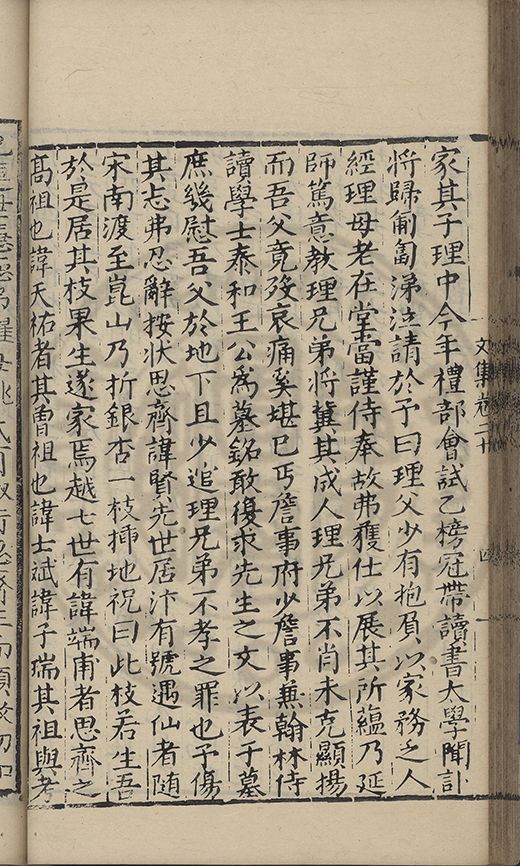 家其子理中今年禮部會試乙榜冠帶讀書太學聞訃
將歸匍匐涕泣請於予曰理父少有抱負以家務乏人
經理母老在堂當謹侍奉故弗獲仕以展其所蘊乃延
師篤意教理兄弟將冀其成人理兄弟不肖未克顯揚
而吾父竟歿哀痛奚堪已丐詹事府少詹事兼翰林侍
讀學士泰和王公爲墓銘敢復求先生之文以表于墓
庶幾慰吾父於地下且少追理兄弟不孝之罪也予傷
其志弗忍辭按狀思齊諱賢先世居汴有號遇仙者随
宋南渡至崑山乃折銀杏一枝挿地祝曰此枝若生吾
於是居其枝果生遂家焉越七世有諱端甫者思齊之
髙祖也諱天祐者其曽祖也諱士斌諱子瑞其祖與考
文集卷二十
四